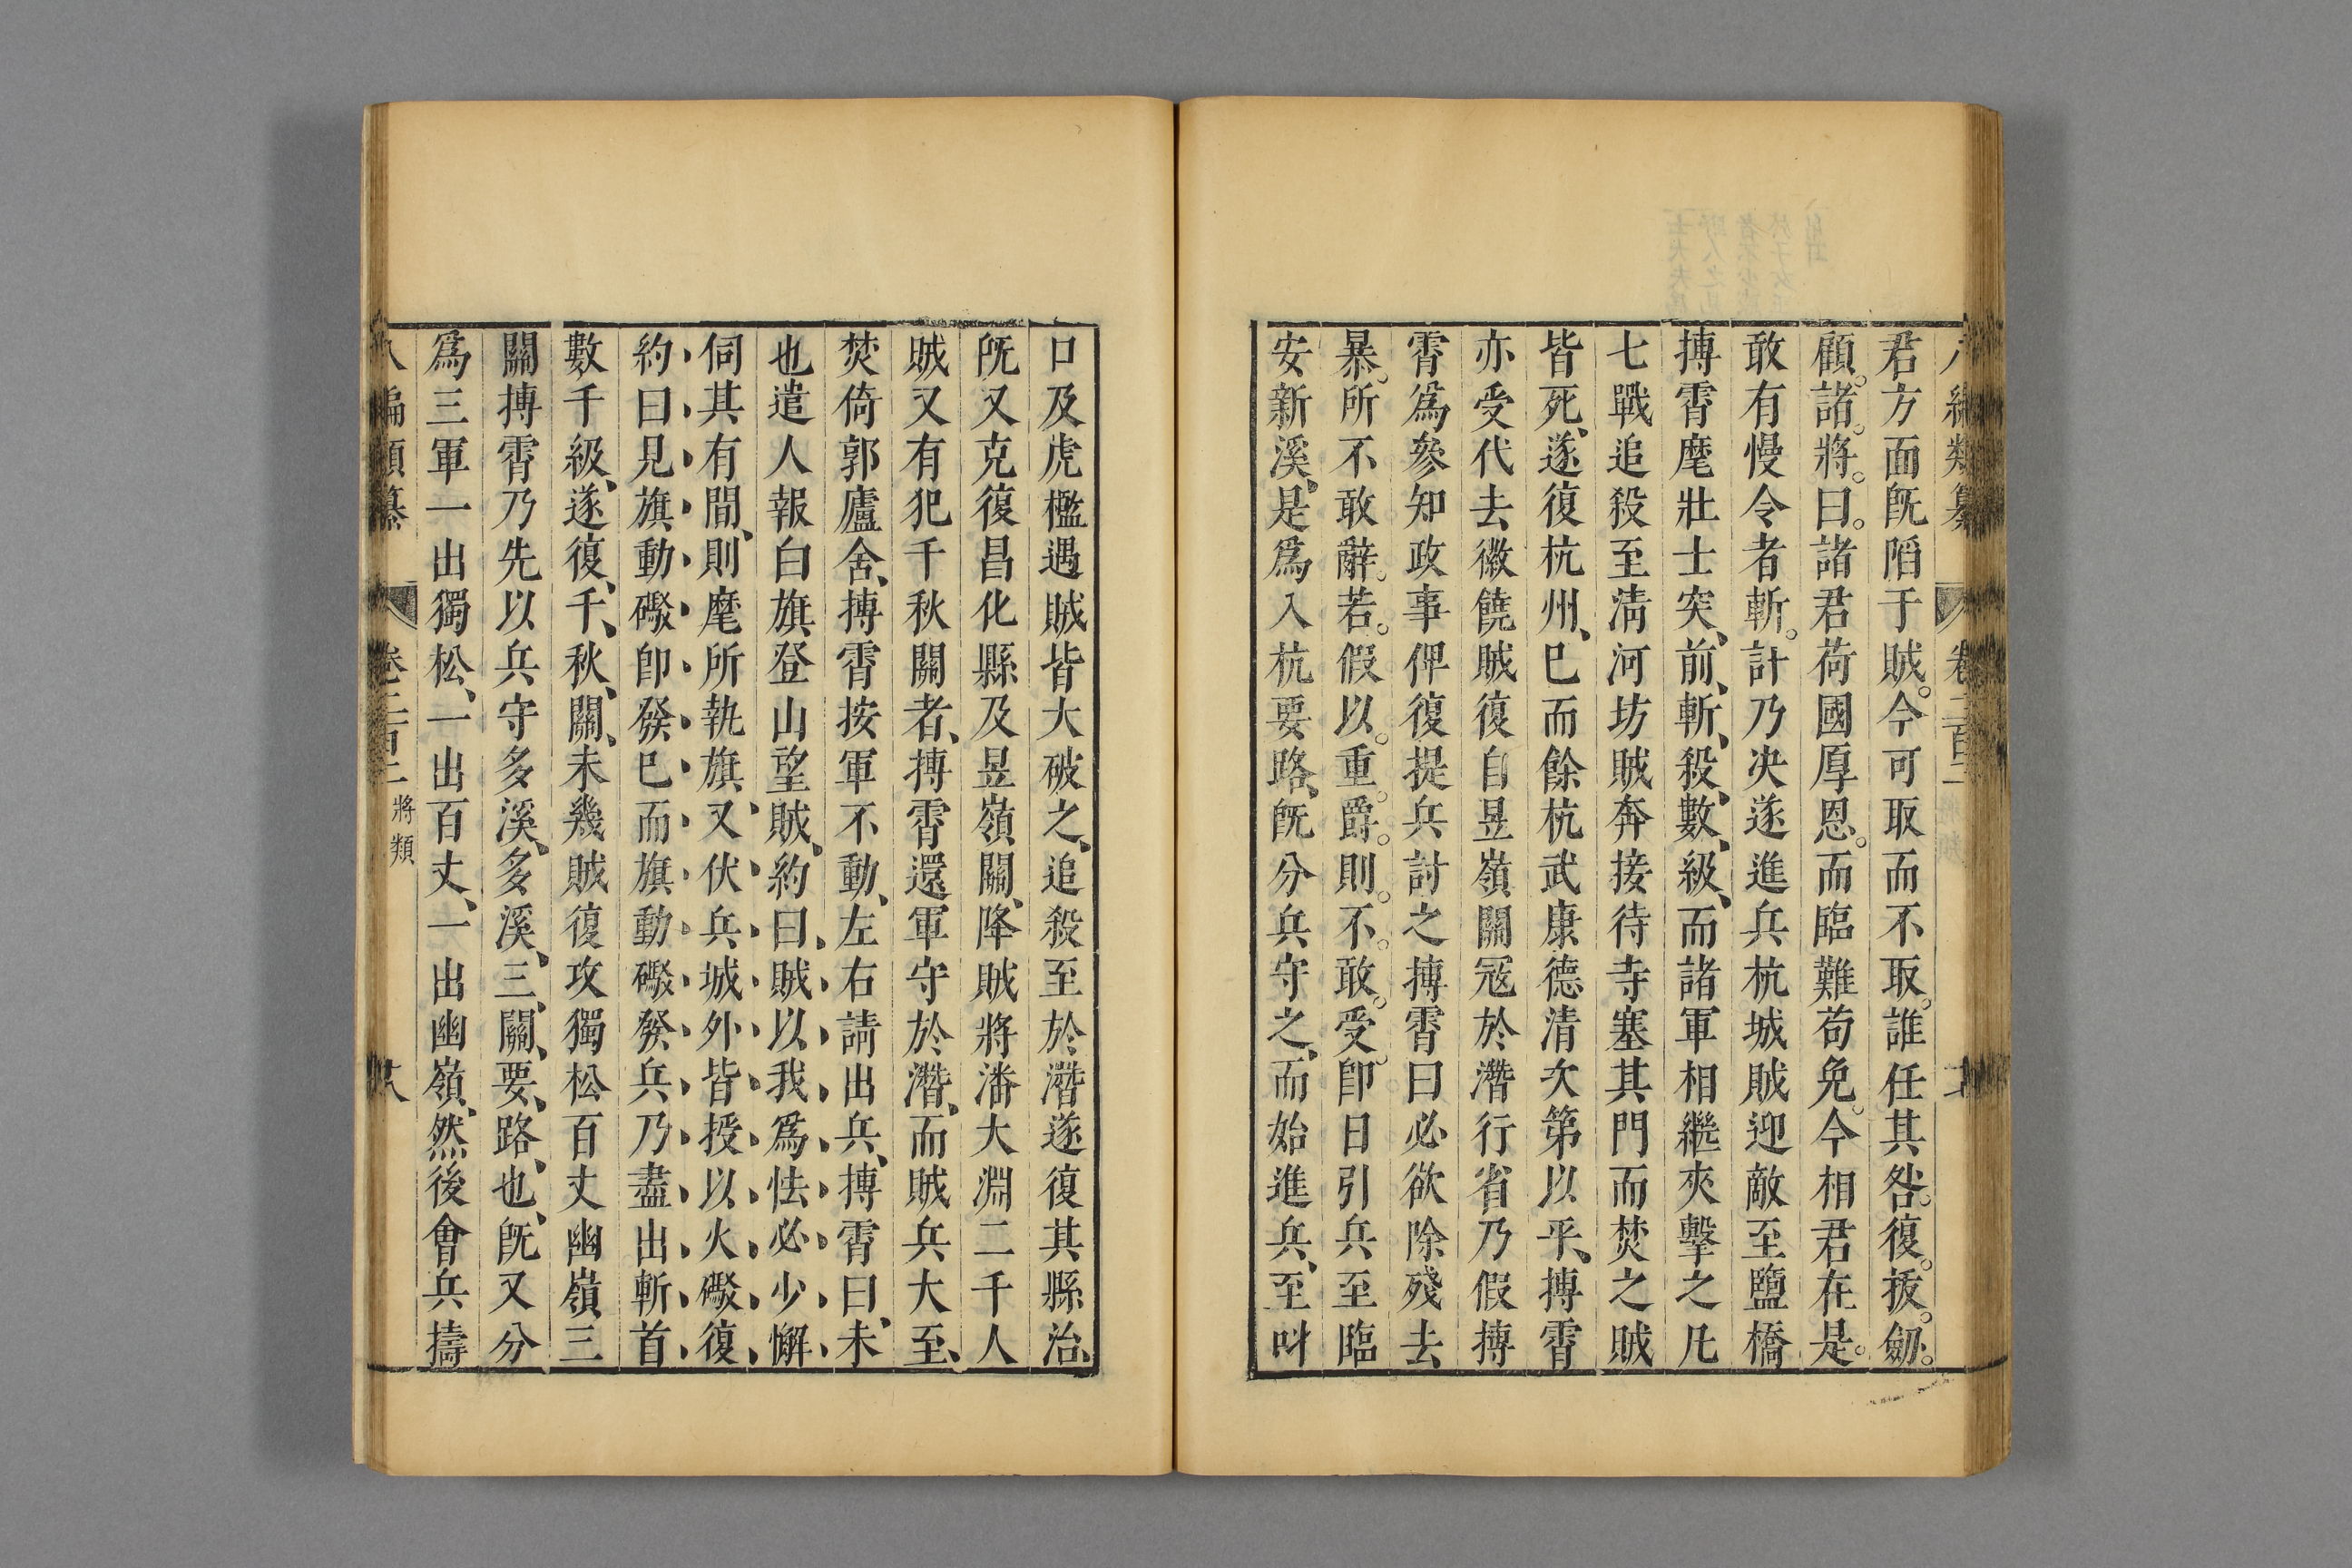 君方面既䧟于賊。今可取而不取。誰任其咎。復。拔。劒。
顧。諸。將。曰。諸君荷國厚恩。而臨難苟免。今相君在是。
敢有慢令者斬。計乃决遂進兵杭城賊迎敵至鹽橋
搏霄麾壯士突、前、斬、殺、數、級、而諸軍相繼夾擊之凡
七戰追殺至淸河坊賊奔接待寺塞其門而焚之賊
皆死、遂復杭州、巳而餘杭武康德清次第以平、搏霄
亦受代去徽饒賊復自昱嶺關冦於潛行省乃假搏
霄爲參知政事俾復提兵討之搏霄曰必欲除殘去
暴。所不敢辭。若。假以。重。爵。則。不。敢。受。即日引兵至臨
安新溪、是爲入杭要路、既分兵守之、而始進兵、至叫
口及虎檻遇賊皆大破之、追殺至於潛遂復其縣治、
旣又克復昌化縣及昱嶺關、降賊將潘大淵二千人
賊又有犯千秋關者、搏霄還軍守於潛、而賊兵大至、
焚倚郭廬舍、搏霄按軍不動、左右請出兵、搏霄曰、未
也遣人報白旗登山望賊、約曰、賊、以、我、爲、怯、必、少、懈
伺其有間、則麾所執旗、又、伏、兵、城、外、皆、授、以、火、礟、復、
約、曰、見、旗、動、礟、即、發、巳、而、旗、動、礟、發、兵、乃、盡、出、斬、首、
數千級、遂復、千、秋、關、未幾賊復攻獨松百丈幽嶺三
關搏霄乃先以兵守多溪、多溪、三、關、要、路、也、旣又分
爲三軍一出獨松、一出百丈、一出幽嶺、然後會兵擣
八編類纂 卷二百二 將類 十八